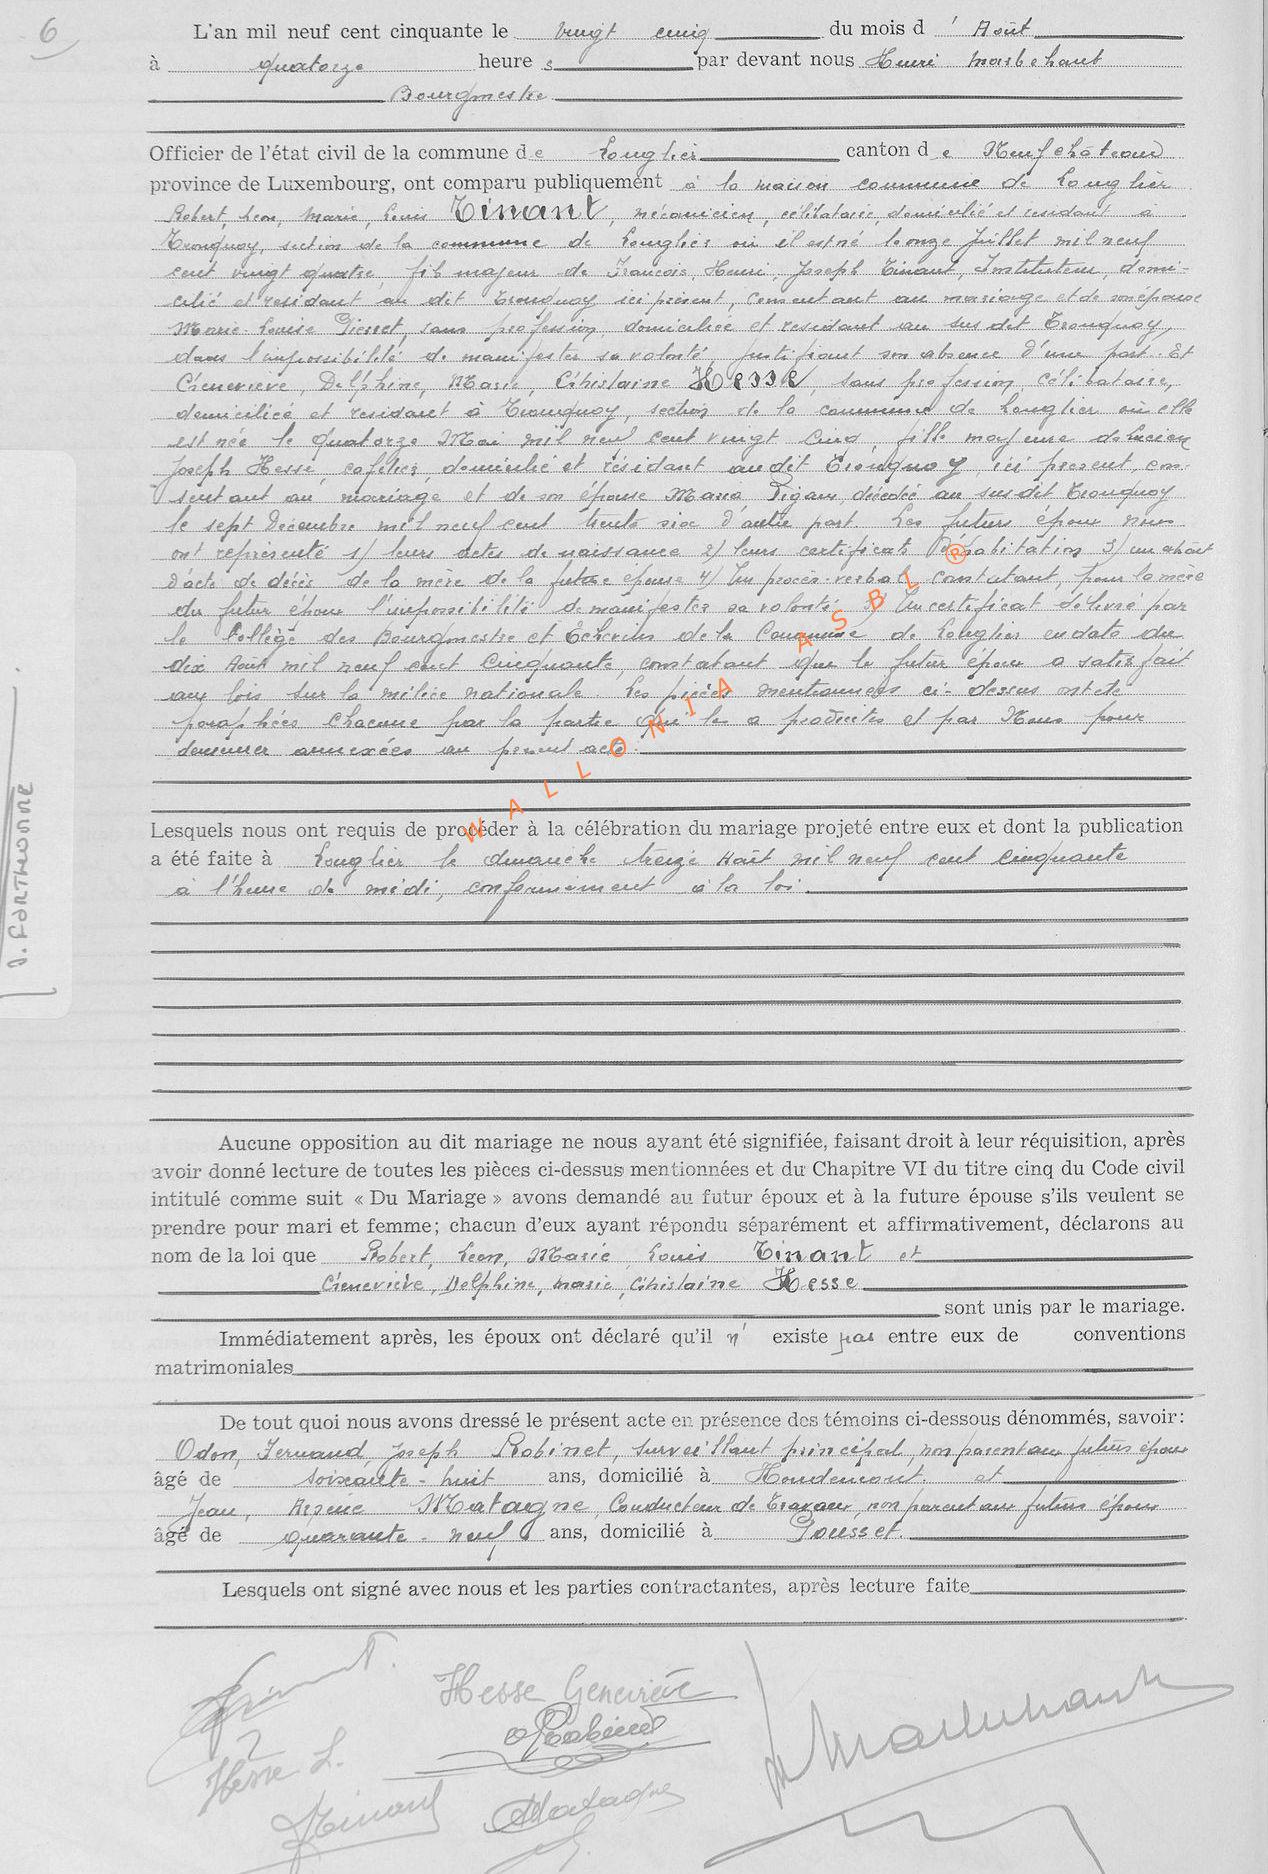 6
L'an mil neuf cent cinquante le vingt cinq du mois d'Août
à quatorze heures par devant nous Henri Marbehant
Bourgmestre
Officier de l'état civil de la commune de Longlier canton de Neufchâteau
province de Luxembourg, ont comparu publiquement à la maison commune de Longlier
Robert, Leon, Marie, Louis Tinant, mécanicien, célibataire, domicilié et residant à
Tronquoy, section de la commune de Longlier où il est né le onze Juillet mil neuf
cent vingt quatre, fils majeur de Francois, Henri, Joseph Tinant, Instituteur, domi-
cilié et residant au dit Tronquoy ici présent, consentant au mariage et de son épouse
Marie-Louise Pierret, sans profession, domiciliée et residant au sus dit Tronquoy,
dans l'impossibilité de manifester sa volonté, justifiant son absence d'une part. Et
Geneviève, Delphine, Marie, Ghislaine Hesse, sans profession, célibataire,
domiciliée et residant à Tronquoy, section de la commune de Longlier où elle
est née le quatorze Mai mil neuf cent vingt cinq, fille majeure de Lucien
Joseph Hesse, cafetier, domicilié et résidant audit Tronquoy, ici present, con-
sentant au mariage et de son épouse Maria Pigeon, décédée au susdit Tronquoy
le sept Decembre mil neuf cent trente six d'autre part. Les futurs époux nous
ont représenté 1) leurs actes de naissance 2) leurs certificats d'habitation 3) un extrait
d'acte de décès de la mère de la future épouse 4) Un procès-verbal constatant, pour la mère
du futur époux l'impossibilité de manifester sa volonté 5) Un certificat délivré par
le Collège des Bourgmestre et Echevins de la Commune de Longlier en date du
dix Août mil neuf cent cinquante, constatant que le futur époux a satisfait
aux lois sur la milice nationale. Les pièces mentionnées ci-dessus ont été
paraphées chacune par la partie qui les a produites et par Nous pour
demeurer annexées au present acte.
WALLONIA ASBL ®
J. FORTHOMME
Lesquels nous ont requis de procéder à la célébration du mariage projeté entre eux et dont la publication
a été faite à Longlier le dimanche treize Août mil neuf cent cinquante
à l'heure de midi, conformément à la loi.
Aucune opposition au dit mariage ne nous ayant été signifiée, faisant droit à leur réquisition, après
avoir donné lecture de toutes les pièces ci-dessus mentionnées et du Chapitre VI du titre cinq du Code civil
intitulé comme suit « Du Mariage » avons demandé au futur époux et à la future épouse s'ils veulent se
prendre pour mari et femme; chacun d'eux ayant répondu séparément et affirmativement, déclarons au
nom de la loi que Robert, Leon, Marie, Louis Tinant et
Geneviève, Delphine, Marie, Ghislaine Hesse
sont unis par le mariage.
Immédiatement après, les époux ont déclaré qu'il n' existe pas entre eux de conventions
matrimoniales
De tout quoi nous avons dressé le présent acte en présence des témoins ci-dessous dénommés, savoir:
Odon, Fernand, Joseph Robinet, surveillant principal, non parent aux futurs époux
âgé de soixante-huit ans, domicilié à Houdemont et
Jean, Arsène Matagne, Conducteur de Travaux, non parent aux futurs époux
âgé de quarante-neuf ans, domicilié à Pousset.
Lesquels ont signé avec nous et les parties contractantes, après lecture faite
Tinant.
Hesse Geneviève
Robinet
Marbehant
Hesse L.
Tinant
Matagne